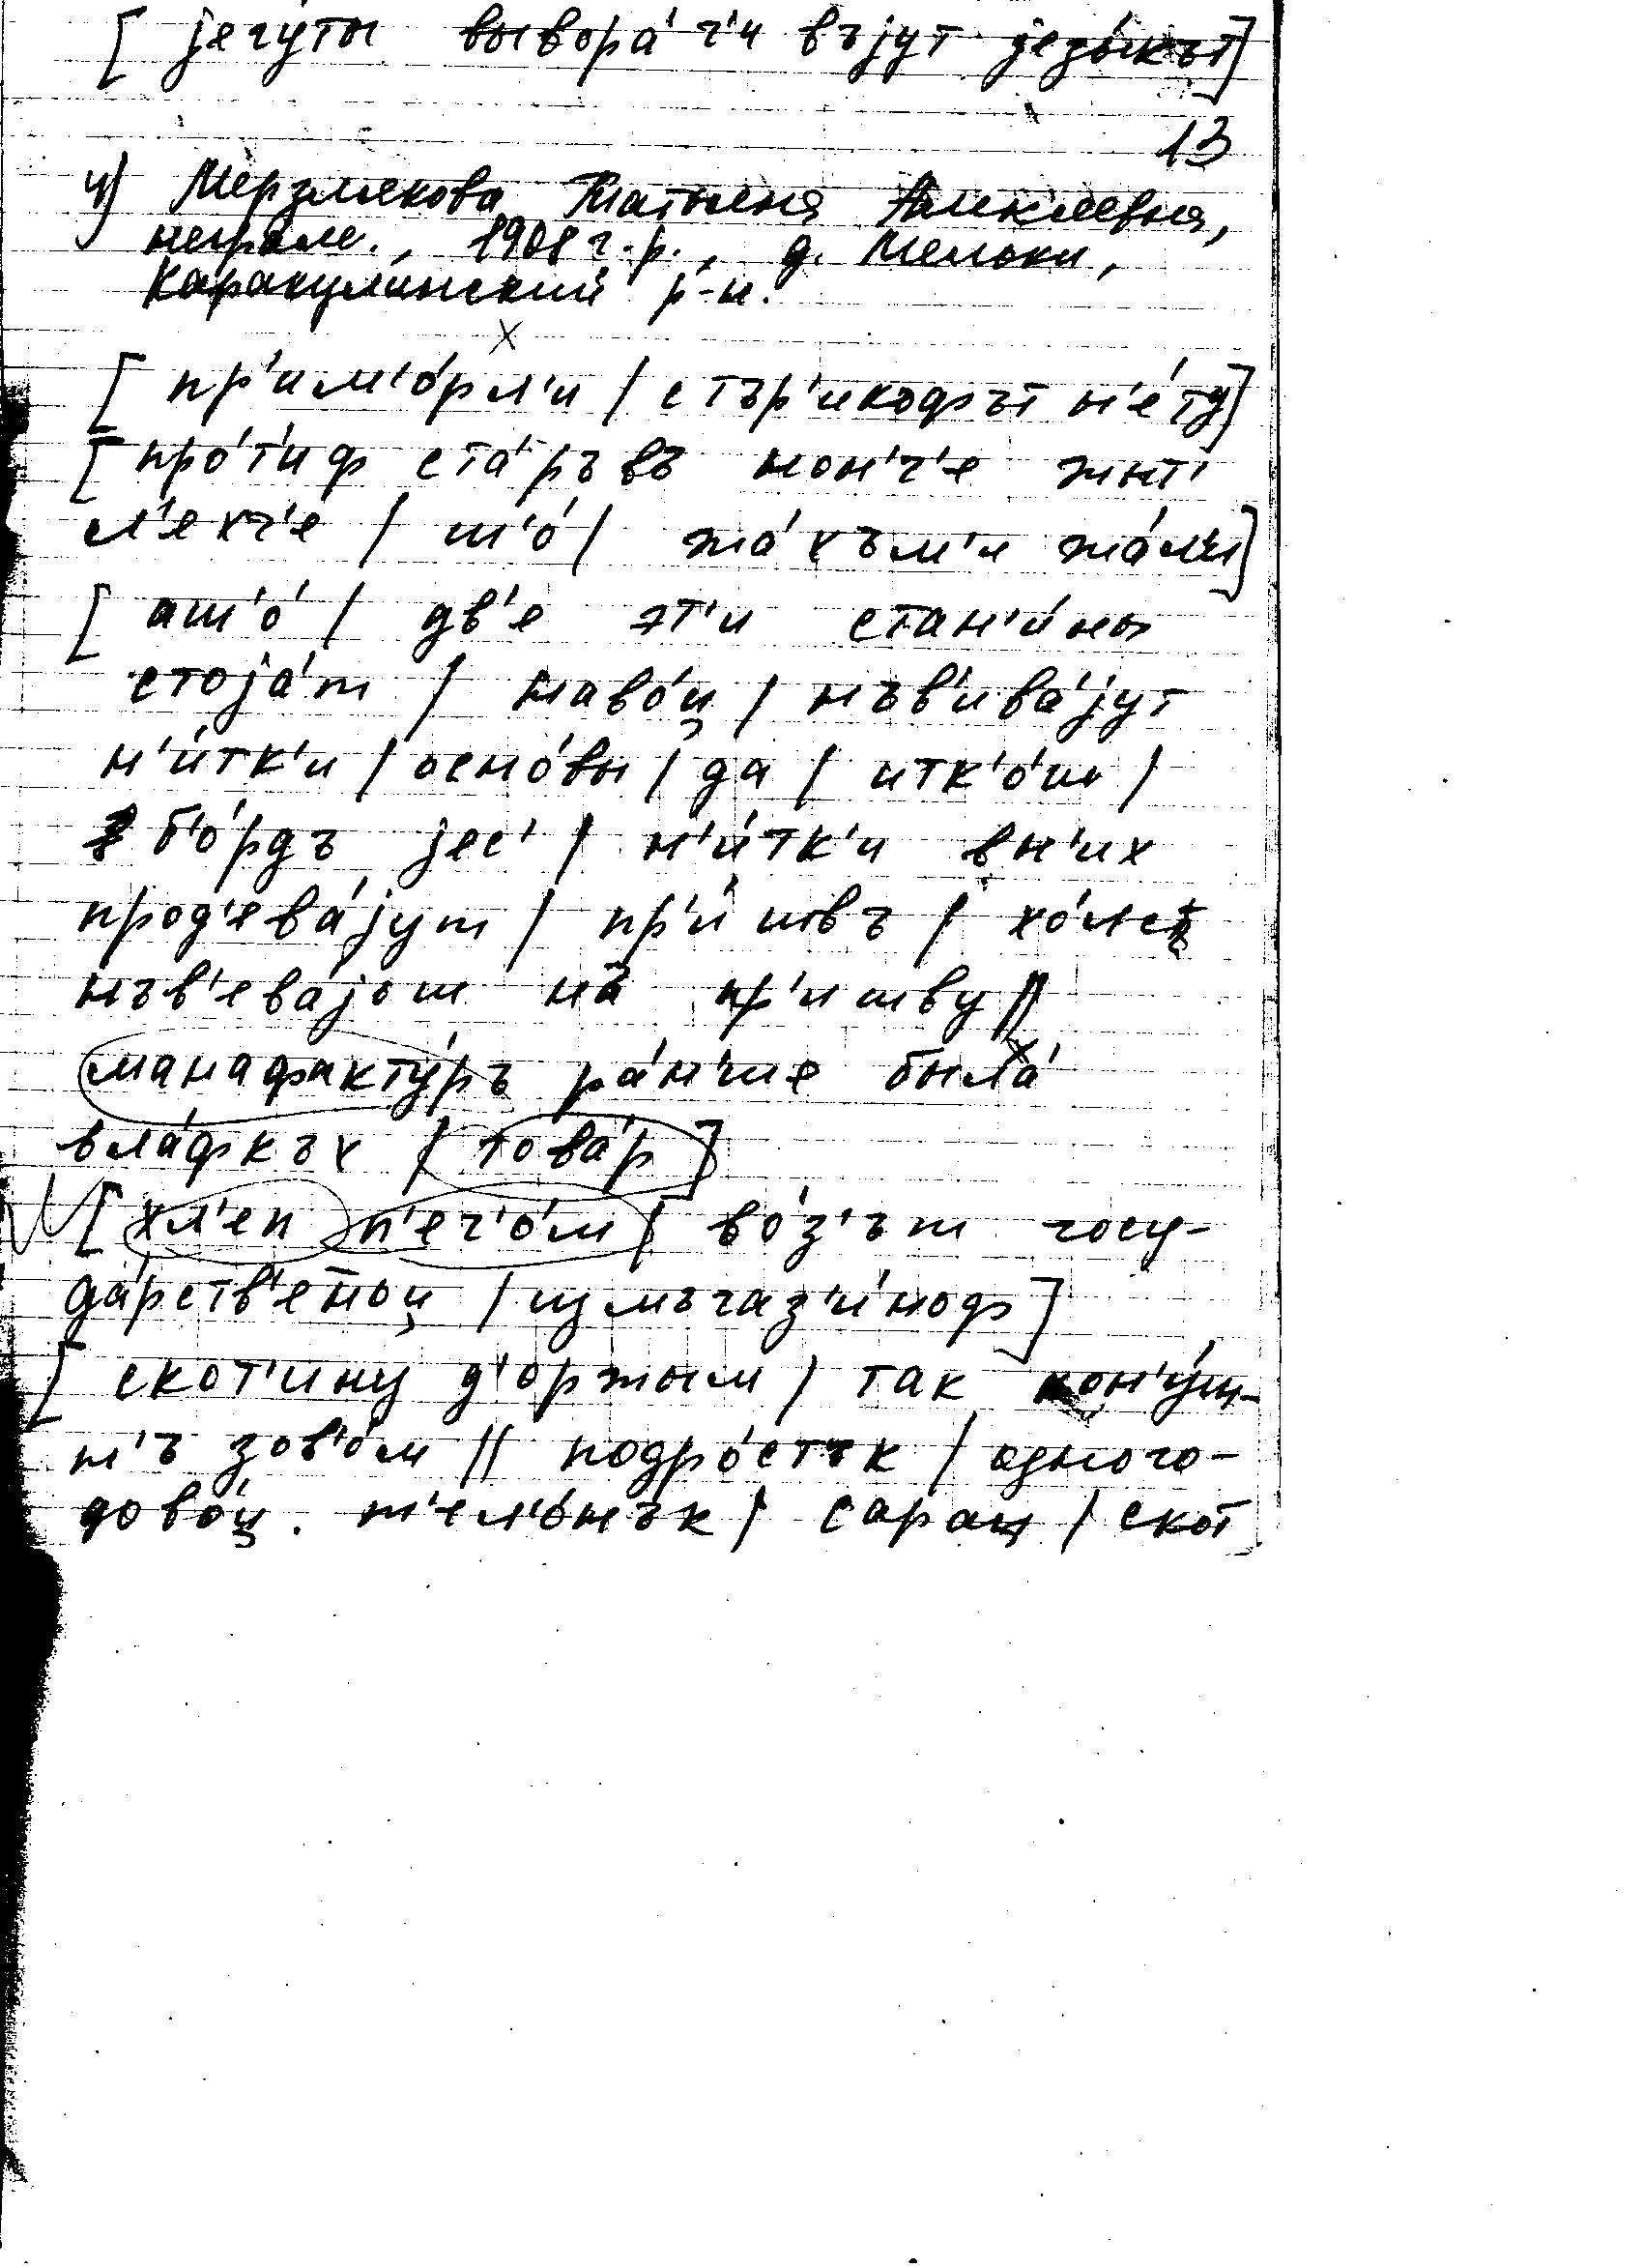 [ јегуты выворáч'и въјут језы́кът]
13
4) Мерзлякова Татьяна Алексеевна,
неграм., 1908 г.р., д. Мельки,
Каракулинский р-н.
[ пр'им'óрл'и / стър'икофът н'éту]
[ прóт'иф стáръвъ нон'ч'е жыт'
л'екч'е / ш'ó / жáхъм'и жáл'и]
[ аш'ó / дв'е эт'и стан'и́ны
стојáт / навóй / нъв'ивáјут
н'и́тк'и / оснóвы / да / итк'óш /
б'óрдъ јес' / н'и́тк'и вн'их
прод'евáјут / пр'и́швъ / хóлст
нъв'евáјот нá пр'ишву //
манафактýръ рáн'ше былá
влáфкъх / товáр ]
[ хл'еп п'еч'óм / вóз'ът госу-
дáрств'еной / измъгаз'и́ноф ]
[ скот'ину д'оржым / так кон'ýш-
н'ъ зов'óм // подрóстък / одного-
довóй т'ел'óнък / сарай / скот